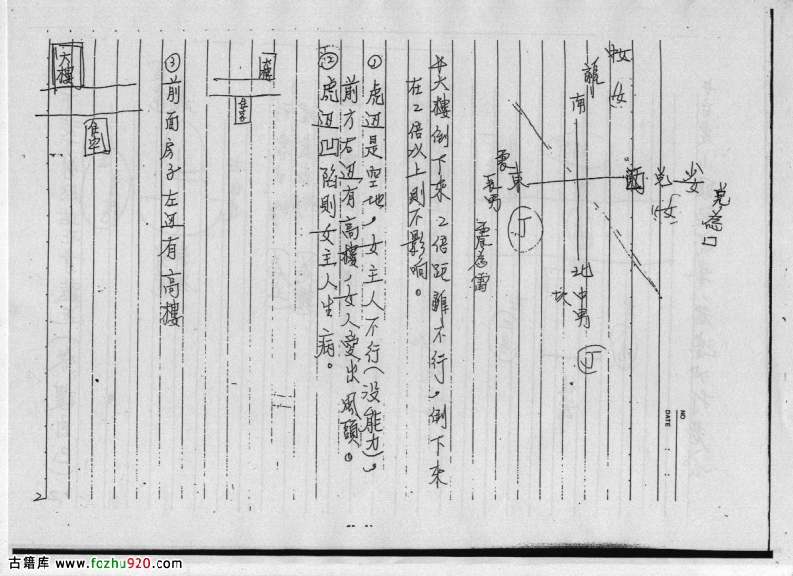 兌為口
少女
兌
女
中女
離
南
西
東
震
長男
震為雷
丁
北中男
坎
丁
大樓倒下來2倍距離不行，倒下來
在2倍以上則不影响。
① 虎边是空地，女主人不行（没能力），
前方右边有高樓，女人愛出風頭。
② 虎边凹陷則女主人生病。
③ 前面房子左边有高樓
大樓
NO
DATE
2
古籍库 www.fozhu920.com